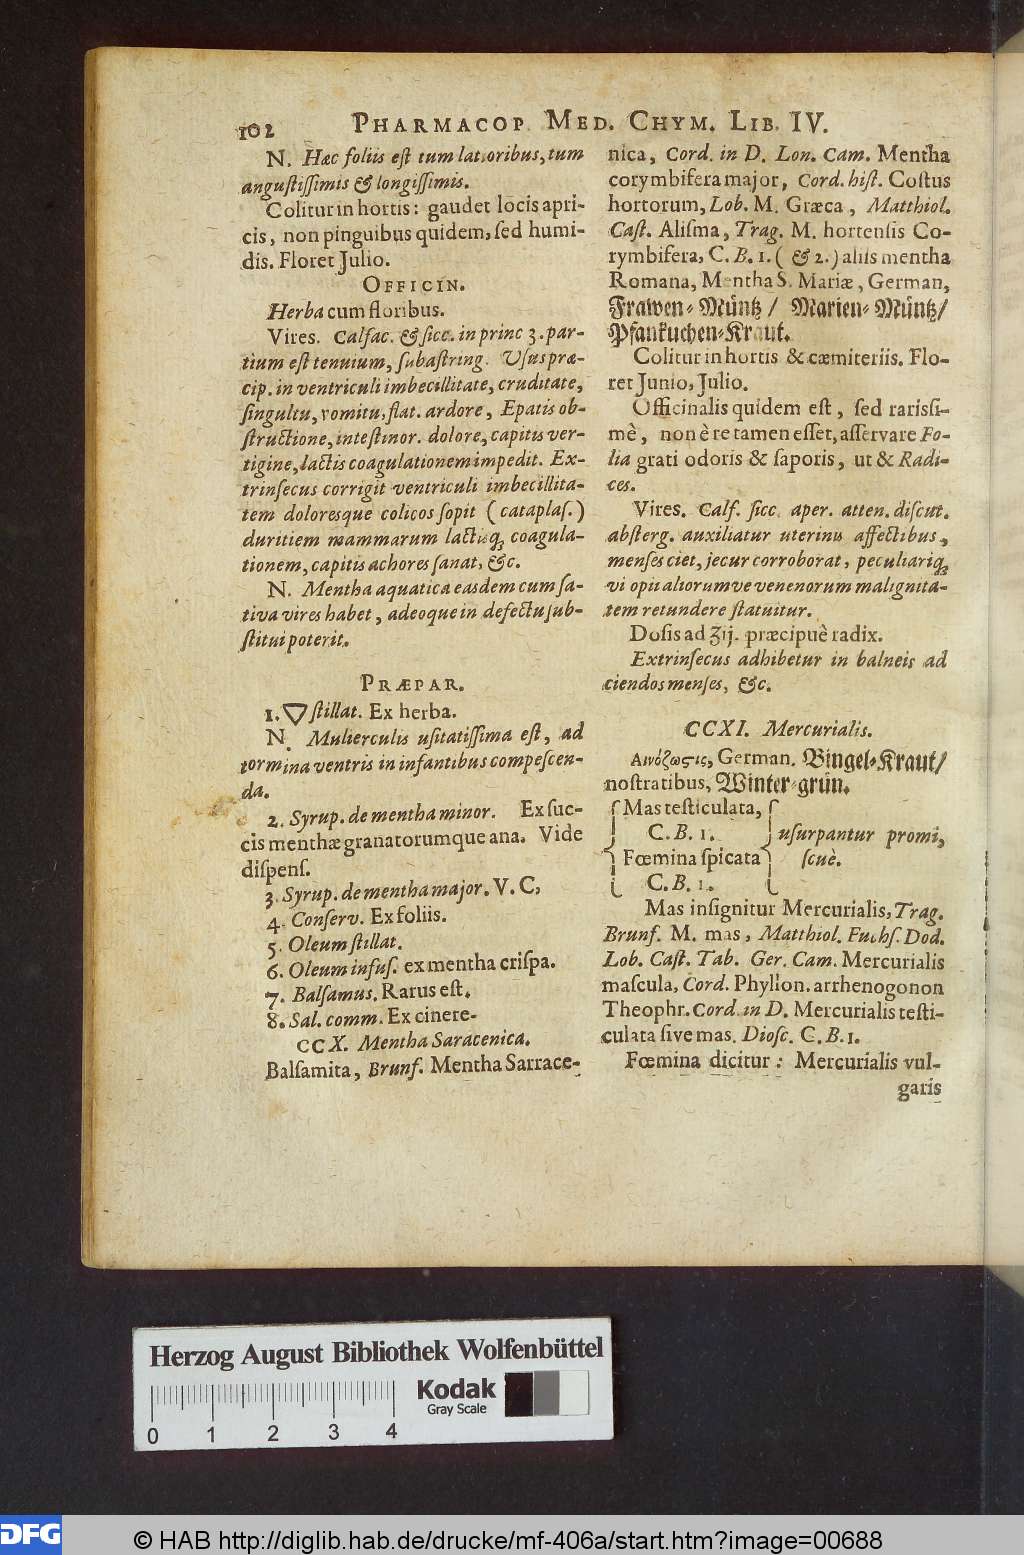 102 PHARMACOP. MED. CHYM. LIB. IV.
N. Hæc foliis eſt tum latioribus, tum
anguſtiſſimis & longiſſimis.
Colitur in hortis: gaudet locis apri-
cis, non pinguibus quidem, ſed humi-
dis. Floret Julio.
OFFICIN.
Herba cum floribus.
Vires. Calfac. & ſicc. in princ 3. par-
tium eſt tenuium, ſubaſtring. Uſus præ-
cip. in ventriculi imbecillitate, cruditate,
ſingultu, vomitu, flat. ardore, Epatis ob-
ſtructione, inteſtinor. dolore, capitis ver-
tigine, lactis coagulationem impedit. Ex-
trinſecus corrigit ventriculi imbecillita-
tem doloresque colicos ſopit (cataplaſ.)
duritiem mammarum lactisq; coagula-
tionem, capitis achores ſanat, &c.
N. Mentha aquatica easdem cum ſa-
tiva vires habet, adeoque in defectu ſub-
ſtitui poterit.
PRÆPAR.
1. 🜄 ſtillat. Ex herba.
N. Mulierculis uſitatiſſima eſt, ad
tormina ventris in infantibus compeſcen-
da.
2. Syrup. de mentha minor. Ex ſuc-
cis menthæ granatorumque ana. Vide
diſpenſ.
3. Syrup. de mentha major. V. C,
4. Conſerv. Ex foliis.
5. Oleum ſtillat.
6. Oleum infuſ. ex mentha criſpa.
7. Balſamus. Rarus eſt.
8. Sal. comm. Ex cinere.
CCX. Mentha Saracenica.
Balſamita, Brunf. Mentha Sarrace-
nica, Cord. in D. Lon. Cam. Mentha
corymbifera major, Cord. hiſt. Coſtus
hortorum, Lob. M. Græca, Matthiol.
Caſt. Aliſma, Trag. M. hortenſis Co-
rymbifera, C. B. 1. ( & 2.) aliis mentha
Romana, Mentha S. Mariæ, German,
Frawen-Müntz / Marien-Müntz/
Pfankuchen-Kraut.
Colitur in hortis & cæmiteriis. Flo-
ret Junio, Julio.
Officinalis quidem eſt, ſed rariſſi-
mè, non è re tamen eſſet, aſſervare Fo-
lia grati odoris & ſaporis, ut & Radi-
ces.
Vires. Calf. ſicc. aper. atten. diſcut.
abſterg. auxiliatur uterinis affectibus,
menſes ciet, jecur corroborat, peculiariq;
vi opii aliorumve venenorum malignita-
tem retundere ſtatuitur.
Doſis ad ʒij. præcipuè radix.
Extrinſecus adhibetur in balneis ad
ciendos menſes, &c.
CCXI. Mercurialis.
Λινόζωςις, German. Bingel-Kraut/
noſtratibus, Winter-grün.
Mas teſticulata,
C. B. 1. uſurpantur promi,
Fœmina ſpicata ſcuè.
C. B. 1.
Mas inſignitur Mercurialis, Trag.
Brunf. M. mas, Matthiol. Fuchſ. Dod.
Lob. Caſt. Tab. Ger. Cam. Mercurialis
maſcula, Cord. Phyllon. arrhenogonon
Theophr. Cord. in D. Mercurialis teſti-
culata ſive mas. Dioſc. C. B. 1.
Fœmina dicitur: Mercurialis vul-
garis
Herzog August Bibliothek Wolfenbüttel
Kodak
Gray Scale
0 1 2 3 4
DFG
© HAB http://diglib.hab.de/drucke/mf-406a/start.htm?image=00688